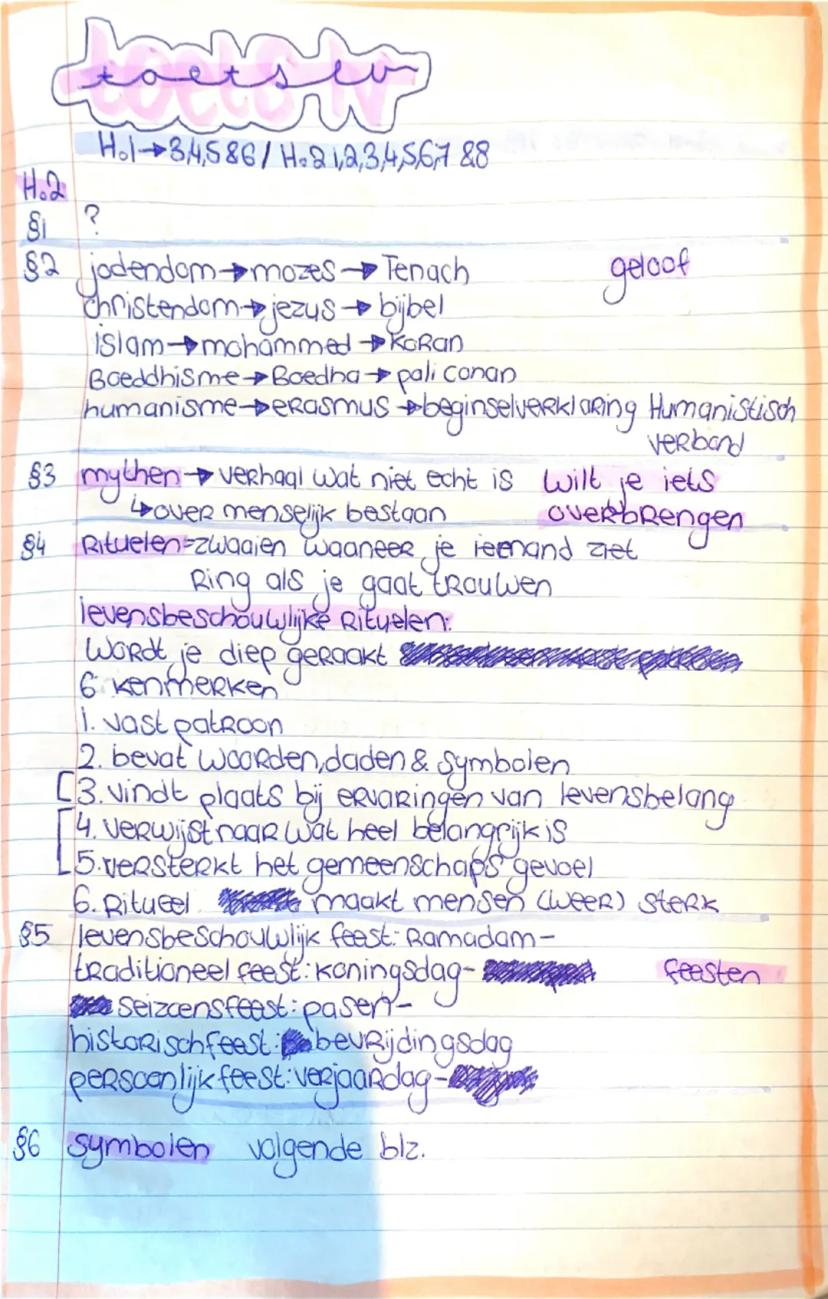 toets lv
H.1→3,4,5&6/H.2 1,2,3,4,5,6,7&8
H.2
§1 ?
§2 jodendom→mozes→Tenach geloof
christendom→jezus→bijbel
islam→mohammed→koran
Boeddhisme→Boedha→pali conan
humanisme→erasmus→beginselverklaring Humanistisch
verbond
§3 mythen→verhaal wat niet echt is wilt je iets
↳over menselijk bestaan overbrengen
§4 Rituelen=zwaaien waaneer je iemand ziet
Ring als je gaat trouwen
levensbeschouwlijke Rituelen:
wordt je diep geraakt
6 kenmerken
1. vast patroon
2. bevat woorden, daden & symbolen
3. vindt plaats bij ervaringen van levensbelang
4. verwijst naar wat heel belangrijk is
5. versterkt het gemeenschaps gevoel
6. Ritueel maakt mensen (weer) sterk
§5 levensbeschouwlijk feest: Ramadam-
traditioneel feest: koningsdag- feesten
seizoensfeest: pasen-
historisch feest: bevrijdingsdag
persoonlijk feest: verjaardag-
§6 symbolen volgende blz.